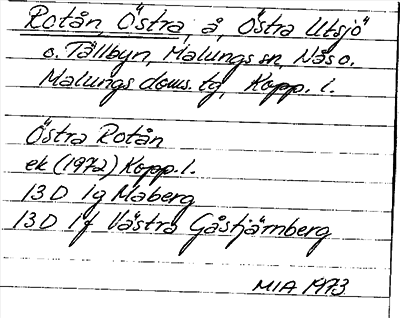 Rotån, Östra, å, Östra Utsjö
o. Tällbyn, Malungs sn, Nås o.
Malungs doms. tg, Kopp. l.
Östra Rotån
ek (1972) Kopp. l.
13D 1g Maberg
13D 1f Västra Gåstjärnberg
MIA 1973